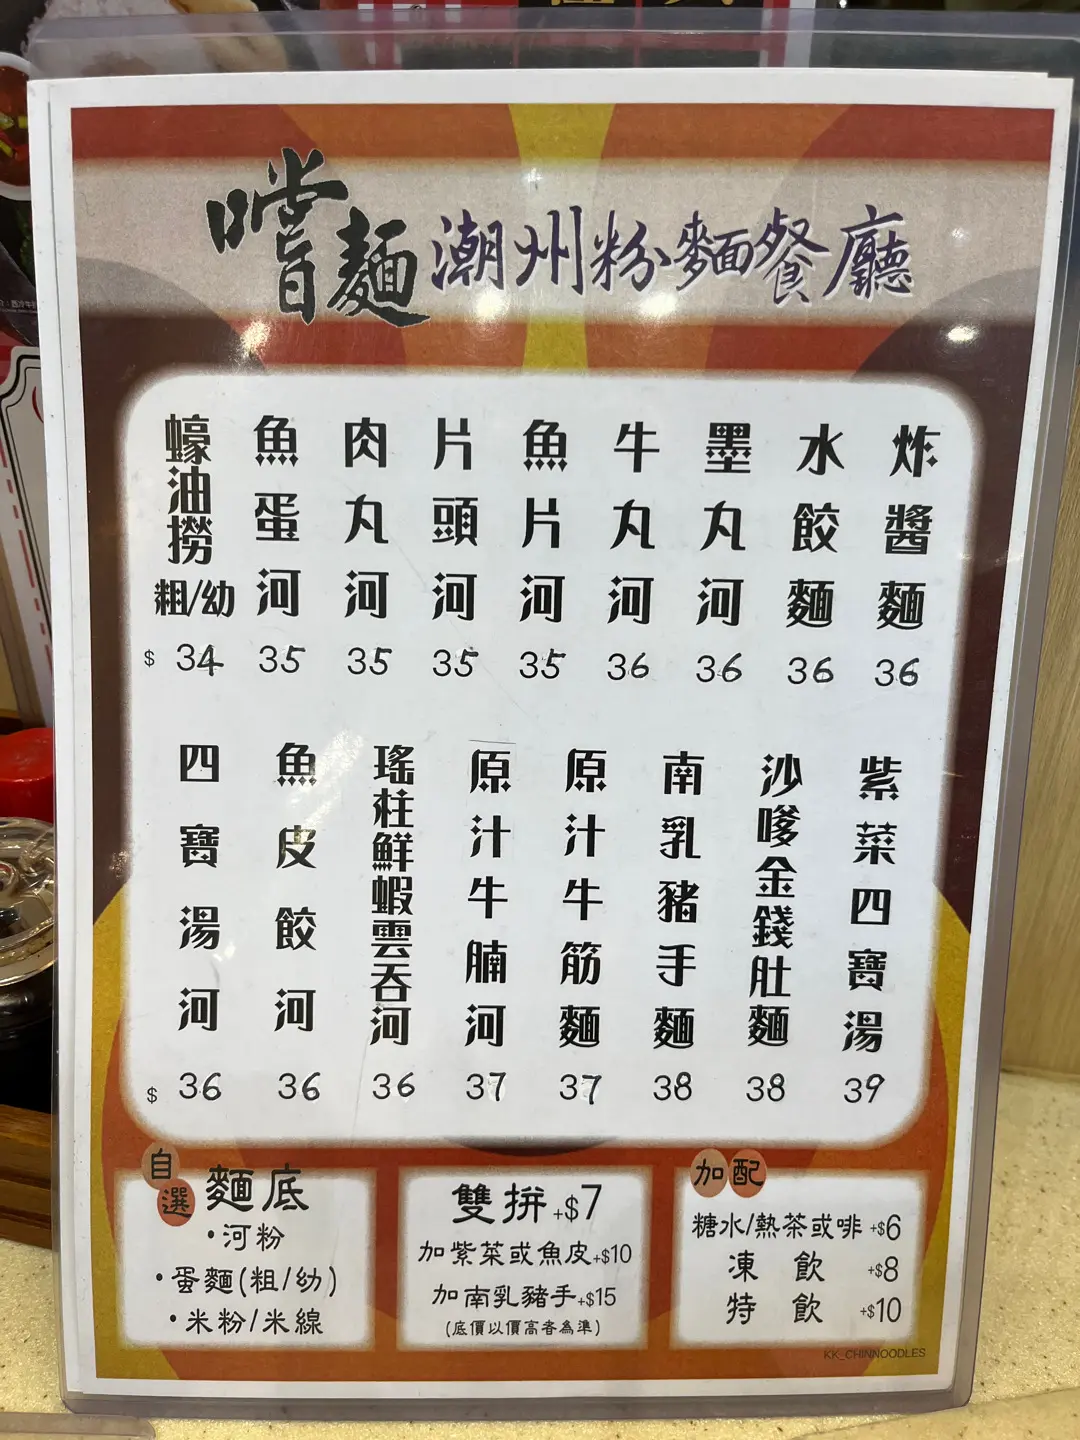 嚐麵潮州粉麵餐廳
蠔油撈粗/幼 $34
魚蛋河 35
肉丸河 35
片頭河 35
魚片河 35
牛丸河 36
墨丸河 36
水餃麵 36
炸醬麵 36
四寶湯河 $36
魚皮餃河 36
瑤柱鮮蝦雲吞河 36
原汁牛腩河 37
原汁牛筋麵 37
南乳豬手麵 38
沙嗲金錢肚麵 38
紫菜四寶湯 39
自選麵底
•河粉
•蛋麵(粗/幼)
•米粉/米線
雙拼+$7
加紫菜或魚皮+$10
加南乳豬手+$15
(底價以價高者為準)
加配
糖水/熱茶或啡 +$6
凍飲 +$8
特飲 +$10
KK_CHINNOODLES